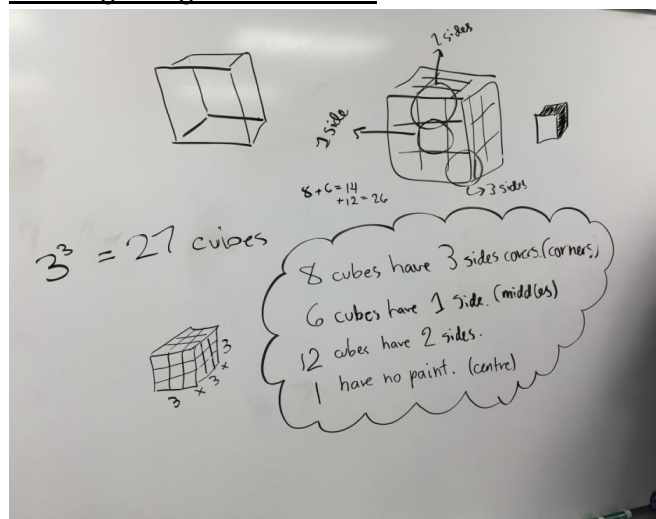 2 sides
1 side
3 sides
8 + 6 = 14
+12 = 26
3³ = 27 cubes
8 cubes have 3 sides (corners)
6 cubes have 1 side. (middles)
12 cubes have 2 sides.
1 have no paint. (centre)
3 x 3 x 3